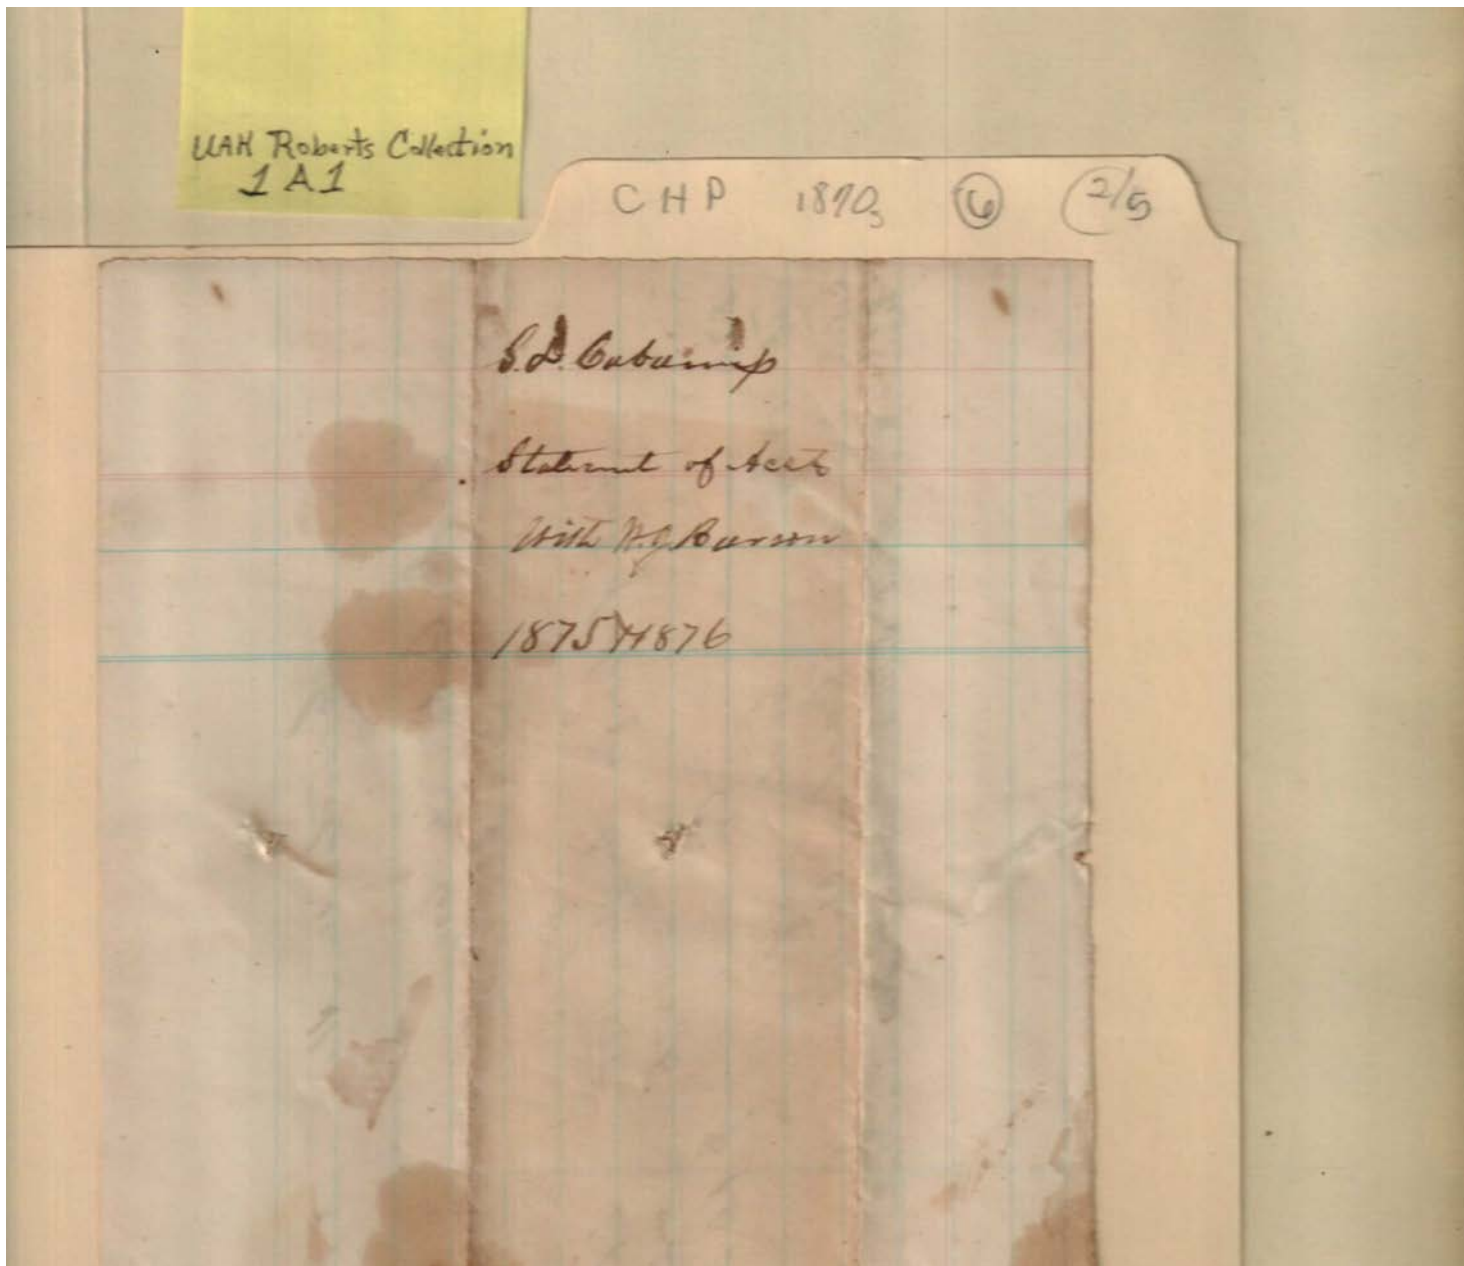 UAH Roberts Collection
1A1
CHP 1870s 6 2/5
S.D. Cabaniss
Statement of Acct
With W.J. Barson
1875 & 1876